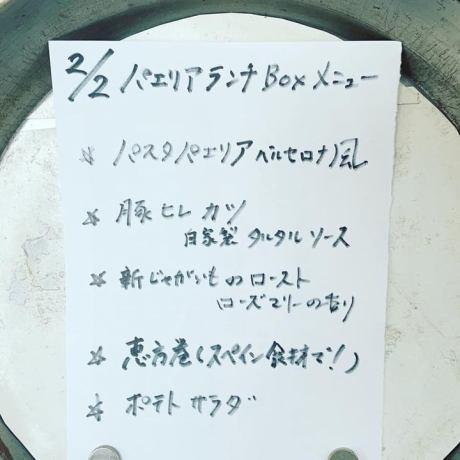 2/2 パエリアランチBoxメニュー
☆ パスタパエリアベルセロナ風
☆ 豚ヒレカツ
自家製タルタルソース
☆ 新じゃがいものロースト
ローズマリーの香り
☆ 恵方巻(スペイン食材で!)
☆ ポテトサラダ